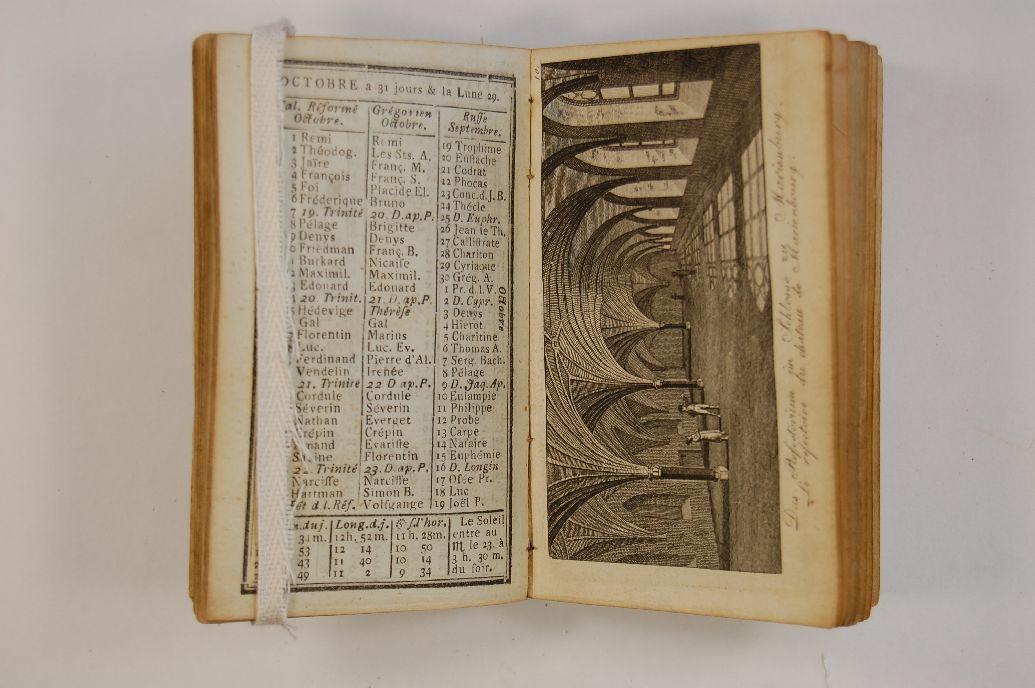 OCTOBRE a 31 jours & la Lune 29.
al. Réformé Octobre. Grégorien Octobre. Russe Septembre.
1 Remi Remi 19 Trophime
2 Théodog. Les Sts. A. 20 Eustache
3 Jaïre Franç. M. 21 Codrat
4 François Franç. S. 22 Phocas
5 Foi Placide El. 23 Conc.d.J.B.
6 Fréderique Bruno 24 Thécle
7 19. Trinité 20. D.ap.P. 25 D. Euphr.
8 Pélage Brigitte 26 Jean le Th.
9 Denys Denys 27 Callistrate
0 Friedman Franç. B. 28 Chariton
1 Burkard Nicaise 29 Cyriaque
2 Maximil. Maximil. 30 Grég. A.
3 Edouard Edouard 1 Pr. d.l.V.
20. Trinit. 21. D. ap.P. 2 D. Cypr.
Hédevige Thérèse 3 Denys
Gal Gal 4 Hierot
Florentin Marius 5 Charitine
Luc. Luc. Ev. 6 Thomas A.
Ferdinand Pierre d'Al. 7 Serg. Bach.
Vendelin Irenée 8 Pélage
21. Trinité 22 D ap.P. 9 D. Jaq.Ap.
Cordule Cordule 10 Eulampie
Séverin Séverin 11 Philippe
Nathan Everget 12 Probe
Crépin Crépin 13 Carpe
mand Evariste 14 Nasaire
Sabine Florentin 15 Euphémie
22. Trinité 23. D.ap.P. 16 D. Longin
Narcisse Narcisse 17 Osée Pr.
Hartman Simon B. 18 Luc
ét d.l.Réf. Volfgange 19 Joël P.
Octobre
n.duj. Long.d.j. & s.l'hor. Le Soleil
34 m. 12h. 52m. 11h. 28m. entre au
53 12 14 10 50 ♏ le 23. à
43 11 40 10 14 3 h. 30 m.
49 11 2 9 34 du soir.
10
Das Refectorium im Schlosse zu Marienburg.
Le réfectoire du château de Marienbourg.